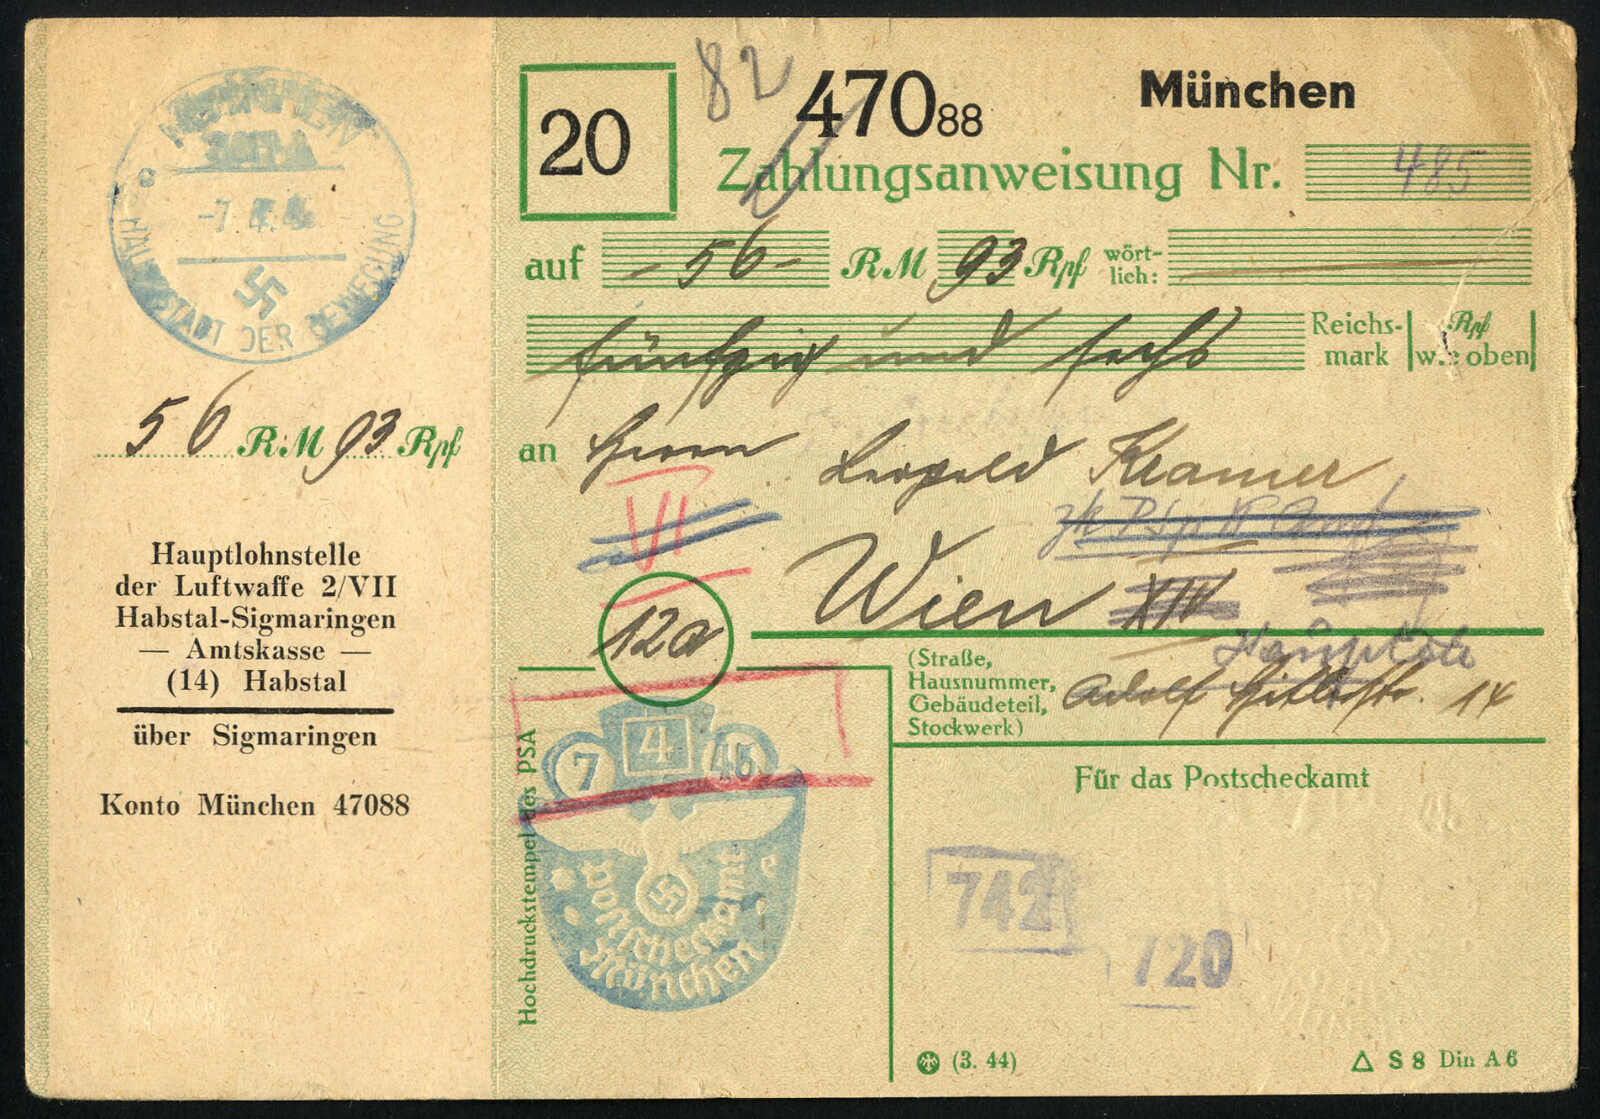 HAUPTSTADT DER BEWEGUNG
56 RM 93 Rpf
Hauptlohnstelle
der Luftwaffe 2/VII
Habstal-Sigmaringen
— Amtskasse —
(14) Habstal
über Sigmaringen
Konto München 47088
20
82
47088
München
Zahlungsanweisung Nr. 485
auf -56- RM 93 Rpf wört-
lich:
fünfzig und sechs
Reichs-
mark
Rpf
wie oben
an Herrn Leopold Kramer
VI
Wien XIV
12a
(Straße,
Hausnummer,
Gebäudeteil,
Stockwerk)
Adolf Hitlerstr. 14
Hochdruckstempel des PSA
7 4 46
Postscheckamt
München
Für das Postscheckamt
742
720
(3. 44)
S 8 Din A 6